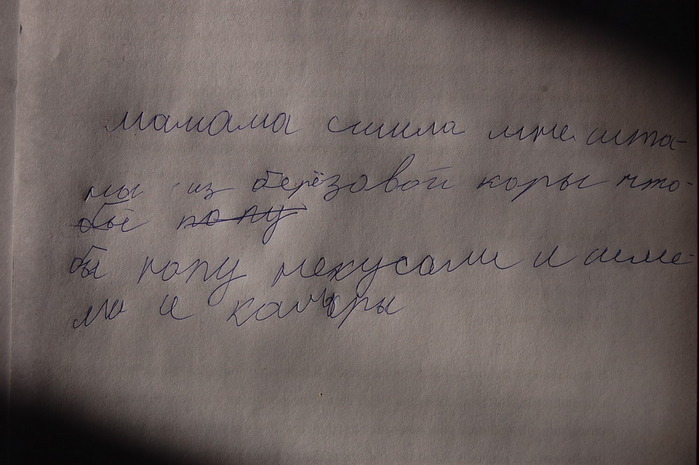 мамама сшила мне шта-
ны из берёзовой коры что-
бы попу
бы попу некусали и шме-
ли и камары